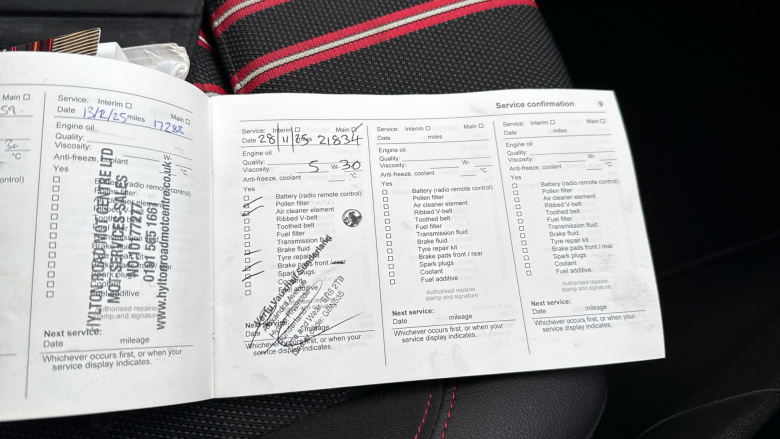 Service confirmation 9
59
30
Service: Interim Main
Date 13/2/25 miles 17288
Engine oil
Quality:
Viscosity:
Anti-freeze, coolant
Yes
HYLTON ROAD MOT CENTRE LTD
MOT SERVICES SALES
0191 565 1661
www.hyltonroadmotcentre.co.uk
Authorised repairer
stamp and signature
Next service:
Date mileage
Whichever occurs first, or when your
service display indicates.
Service: Interim Main
Date 28/11/25 miles 21834
Engine oil
Quality:
Viscosity: 5 W- 30
Anti-freeze, coolant °C
Yes
Battery (radio remote control)
Pollen filter
Air cleaner element
Ribbed V-belt
Toothed belt
Fuel filter
Transmission fluid
Brake fluid
Tyre repair kit
Brake pads front / rear
Spark plugs
Vauxhall Sunderland
SR5 2TB
Date mileage
Whichever occurs first, or when your
service display indicates.
Service: Interim Main
Date miles
Engine oil
Quality:
Viscosity: W-
Anti-freeze, coolant °C
Yes
Battery (radio remote control)
Pollen filter
Air cleaner element
Ribbed V-belt
Toothed belt
Fuel filter
Transmission fluid
Brake fluid
Tyre repair kit
Brake pads front / rear
Spark plugs
Coolant
Fuel additive
Authorised repairer
stamp and signature
Next service:
Date mileage
Whichever occurs first, or when your
service display indicates.
Service: Interim Main
Date miles
Engine oil
Quality:
Viscosity: W-
Anti-freeze, coolant °C
Yes
Battery (radio remote control)
Pollen filter
Air cleaner element
Ribbed V-belt
Toothed belt
Fuel filter
Transmission fluid
Brake fluid
Tyre repair kit
Brake pads front / rear
Spark plugs
Coolant
Fuel additive
Authorised repairer
stamp and signature
Next service:
Date mileage
Whichever occurs first, or when your
service display indicates.